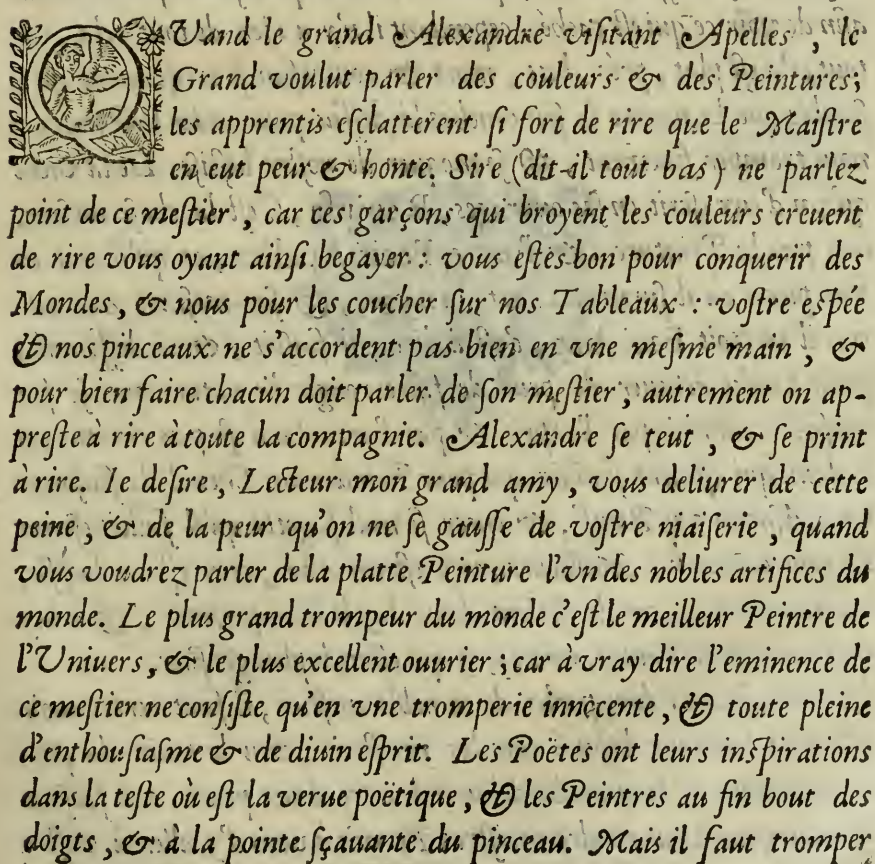 QVand le grand Alexandre visitant Apelles, le
Grand voulut parler des couleurs & des Peintures;
les apprentis esclatterent si fort de rire que le Maistre
en eut peur & honte. Sire (dit-il tout bas) ne parlez
point de ce mestier, car ces garçons qui broyent les couleurs creuent
de rire vous oyant ainsi begayer: vous estes bon pour conquerir des
Mondes, & nous pour les coucher sur nos Tableaux: vostre espée
& nos pinceaux ne s'accordent pas bien en vne mesme main, &
pour bien faire chacun doit parler de son mestier, autrement on ap-
preste à rire à toute la compagnie. Alexandre se teut, & se print
à rire. Ie desire, Lecteur mon grand amy, vous deliurer de cette
peine, & de la peur qu'on ne se gausse de vostre niaiserie, quand
vous voudrez parler de la platte Peinture l'vn des nobles artifices du
monde. Le plus grand trompeur du monde c'est le meilleur Peintre de
l'Vniuers, & le plus excellent ouurier; car à vray dire l'eminence de
ce mestier ne consiste qu'en vne tromperie innocente, & toute pleine
d'enthousiasme & de diuin esprit. Les Poëtes ont leurs inspirations
dans la teste où est la verue poëtique, & les Peintres au fin bout des
doigts, & à la pointe sçauante du pinceau. Mais il faut tromper